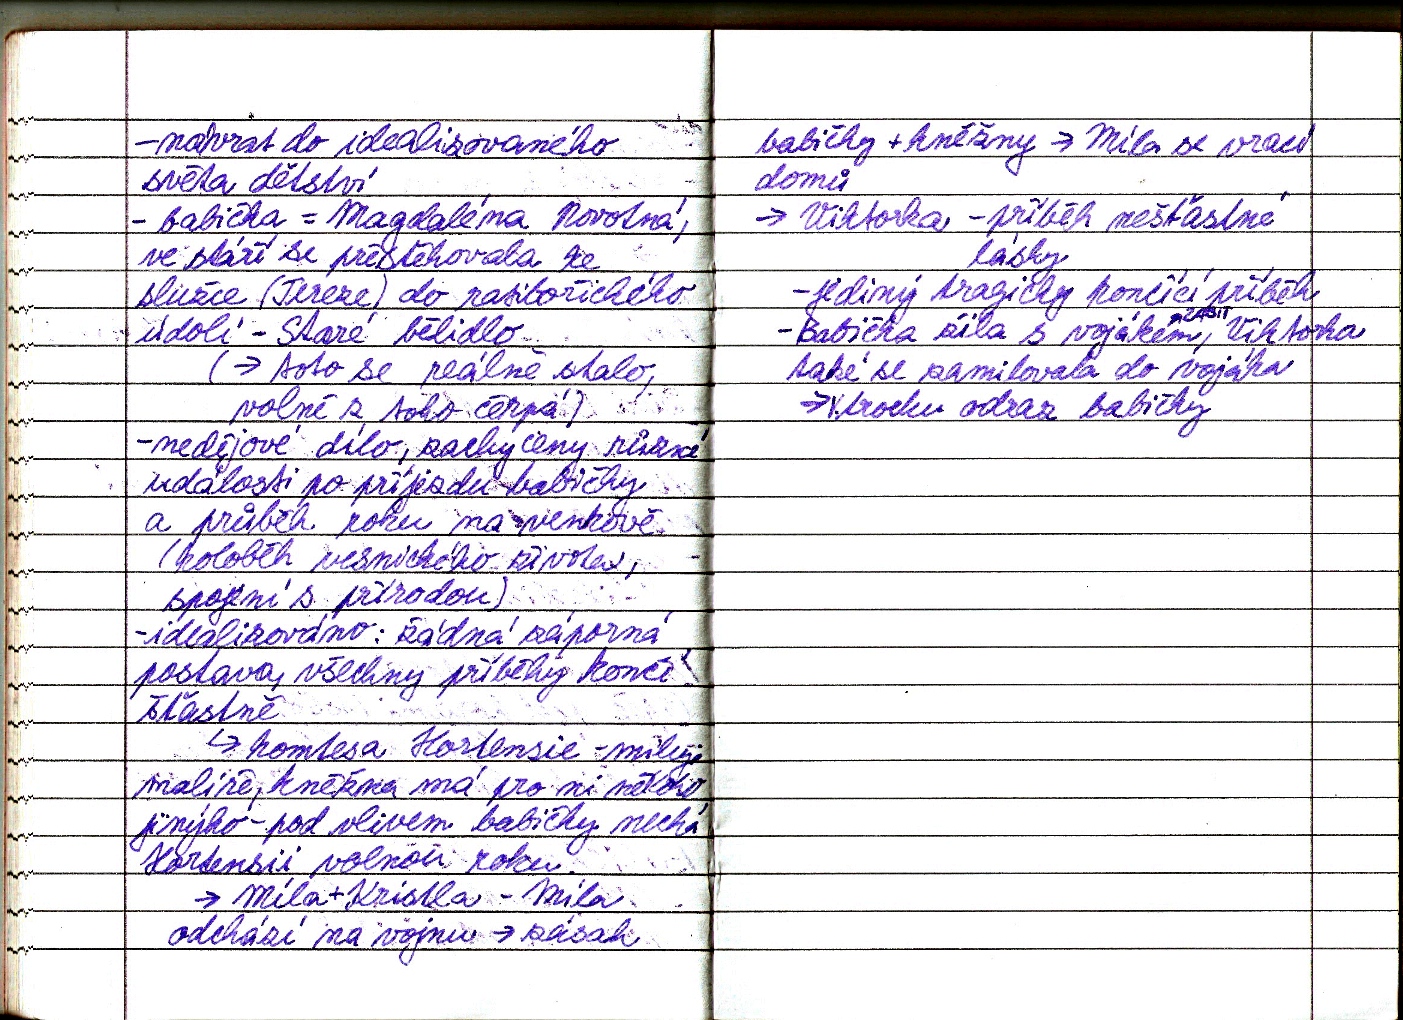 -návrat do idealizovaného
světa dětství
- babička = Magdaléna Novotná,
ve stáří se přestěhovala ke
služce (Tereze) do ratibořického
údolí - Staré bělidlo
(→ toto se reálně stalo,
volně z toho čerpá)
-nedějové dílo, zachyceny různé
události po příjezdu babičky
a průběh roku na venkově
(koloběh vesnického života,
spojení s přírodou)
-idealizováno: žádná záporná
postava, všechny příběhy končí
šťastně
↳ komtesa Hortensie - miluje
malíře, kněžna má pro ni někoho
jinýho - pod vlivem babičky nechá
Hortensii volnou ruku
→ Míla + Kristla - Míla
odchází na vojnu → zásah
babičky + kněžny → Míla se vrací
domů
→ Viktorka - příběh nešťastné
lásky
- jediný tragicky končící příběh
- Babička žila s vojákem, Viktorka
také se zamilovala do vojáka
→ trochu odraz babičky